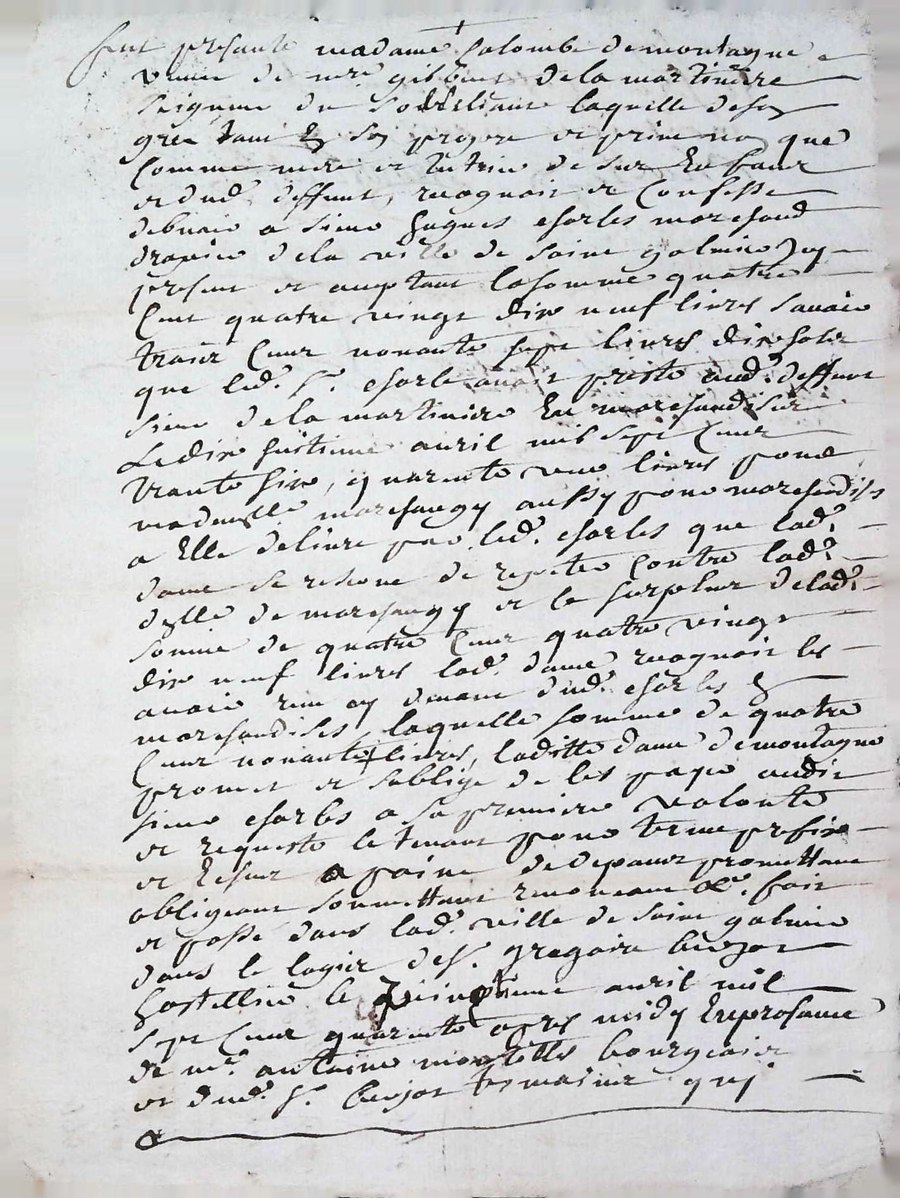 fut presante madame Colombe demontagne
veuve de mre. gilbert dela martiniere
seigneur du laquelle deson
gree tant En son propre et prive nom que
Comme mere et tutrice de sur Enfant
et dud. deffunt, recognoit et Confesse
debvoir a sieur hugues charles marchand
drapier dela ville de saint galmier Icy
present et aceptant lasomme quatre
Cent quatre vingt dix neuf livres savoir
trois Cent nonante sept livres dix sols
que led. sr. charle avoit preste aud. deffunt
sieur dela martiniere En marchandises
Le dix huitieme avril mil sept Cent
trante six, quarante une livres pour
mademlle marchangy aussy pour marchandises
a Elle delivre par led. charles que lad.
dame se reserve de repeter Contre lad.
dlle de marchangy et le surplus delad.
somme de quatre Cent quatre vingt
dix neuf livres lad. dame recognoit les
avoir reeu cy devant dud. charles En
marchandises, laquelle somme de quatre
Cent nonante livres, laditte dame demontagne
promet et soblige de les payer audit
sieur charles a sa premiere volonte
et requeste le tenant pour terme prefix
et Eschut a paine de depans promettant
obligeant soumettant renonceant &c. fait
et passe dans lad. ville de saint galmier
dans le logis de sr. gregoire
hostellier le quinzieme avril mil
sept Cent quarante apres midy En presance
de mr. antoine bourgeois
et dud. sr. tesmoins qui